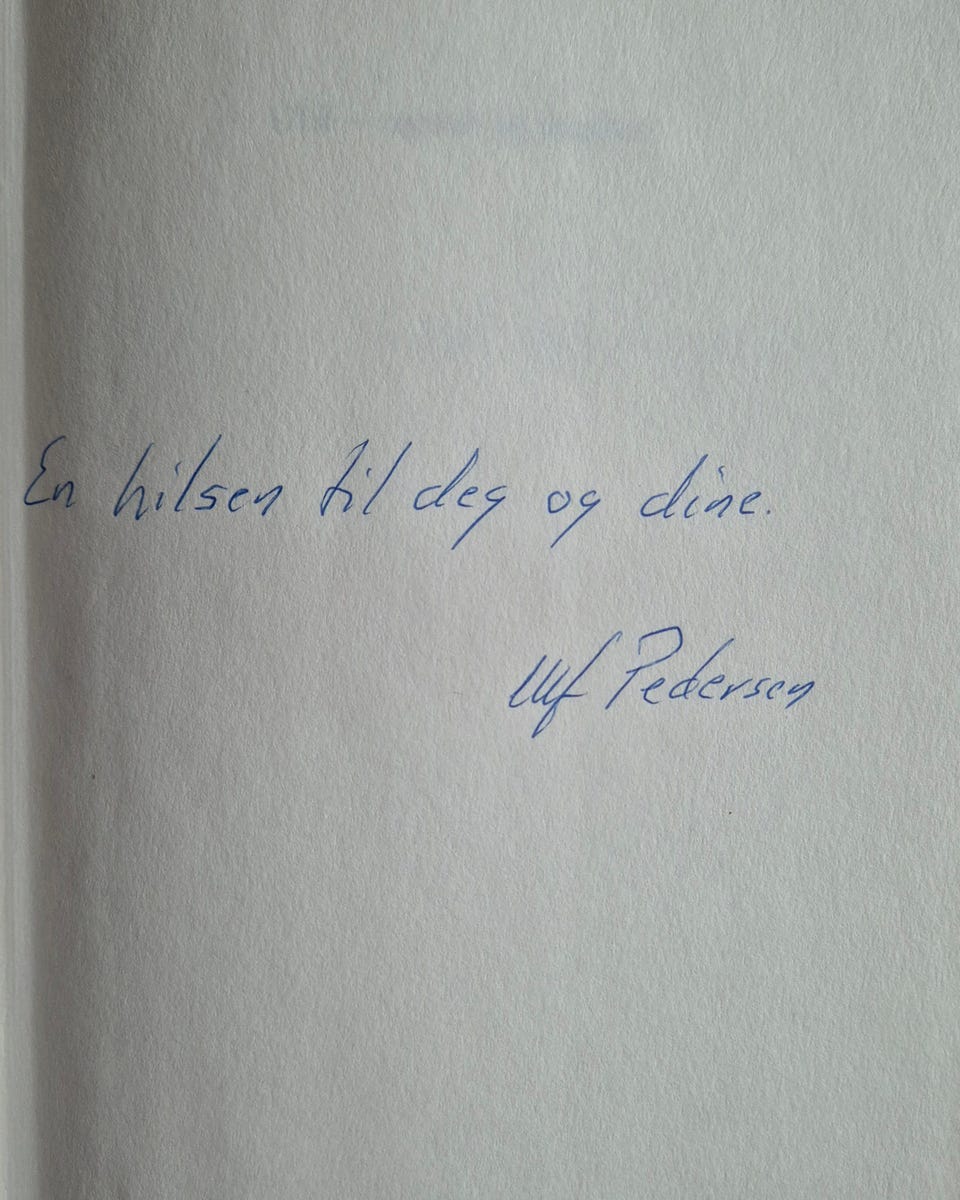 En hilsen til deg og dine.
Ulf Pedersen